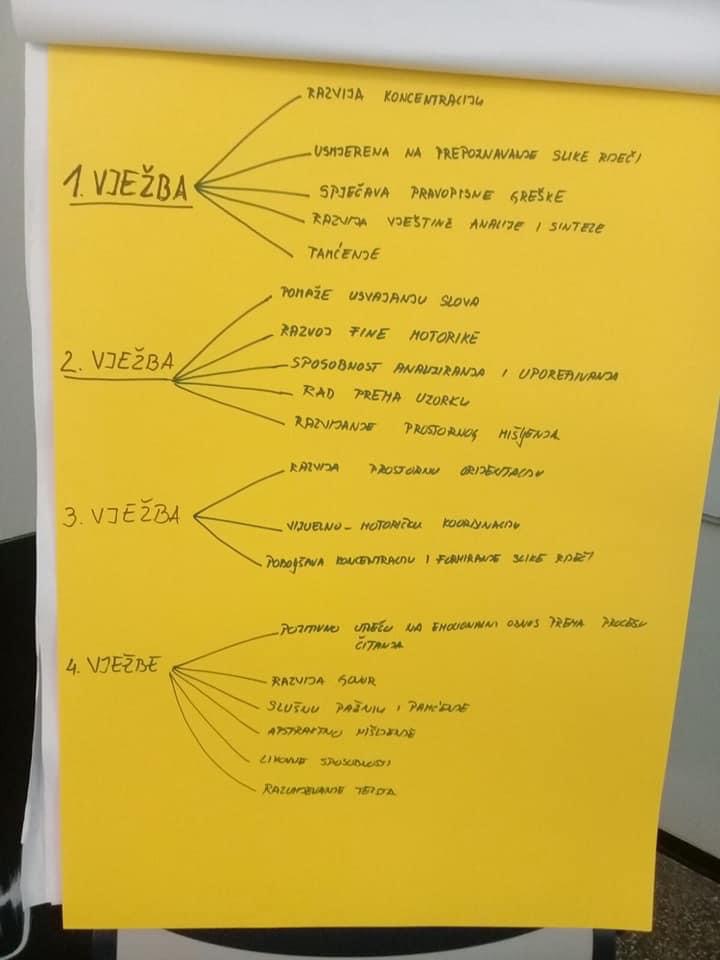 1. VJEŽBA
RAZVIJA KONCENTRACIJU
USMJERENA NA PREPOZNAVANJE SLIKE RIJEČI
SPJEČAVA PRAVOPISNE GREŠKE
RAZVIJA VJEŠTINE ANALIJE I SINTEZE
PAMĆENJE
2. VJEŽBA
POMAŽE USVAJANJU SLOVA
RAZVOJ FINE MOTORIKE
SPOSOBNOST ANALIZIRANJA I UPOREĐIVANJA
RAD PREMA UZORKU
RAZVIJANJE PROSTORNOG MIŠLJENJA
3. VJEŽBA
RAZVIJA PROSTORNU ORIJENTACIJU
VIZUELNO-MOTORIČKU KOORDINACIJU
POBOLJŠAVA KONCENTRACIJU I FORMIRANJE SLIKE RIJEČI
4. VJEŽBE
POZITIVNO UTIČU NA EMOCIONALNI ODNOS PREMA PROCESU
ČITANJA
RAZVIJA GOVOR
SLUŠNU PAŽNJU I PAMĆENJE
APSTRAKTNO MIŠLJENJE
LIKOVNE SPOSOBNOSTI
RAZUMJEVANJE TEKSTA